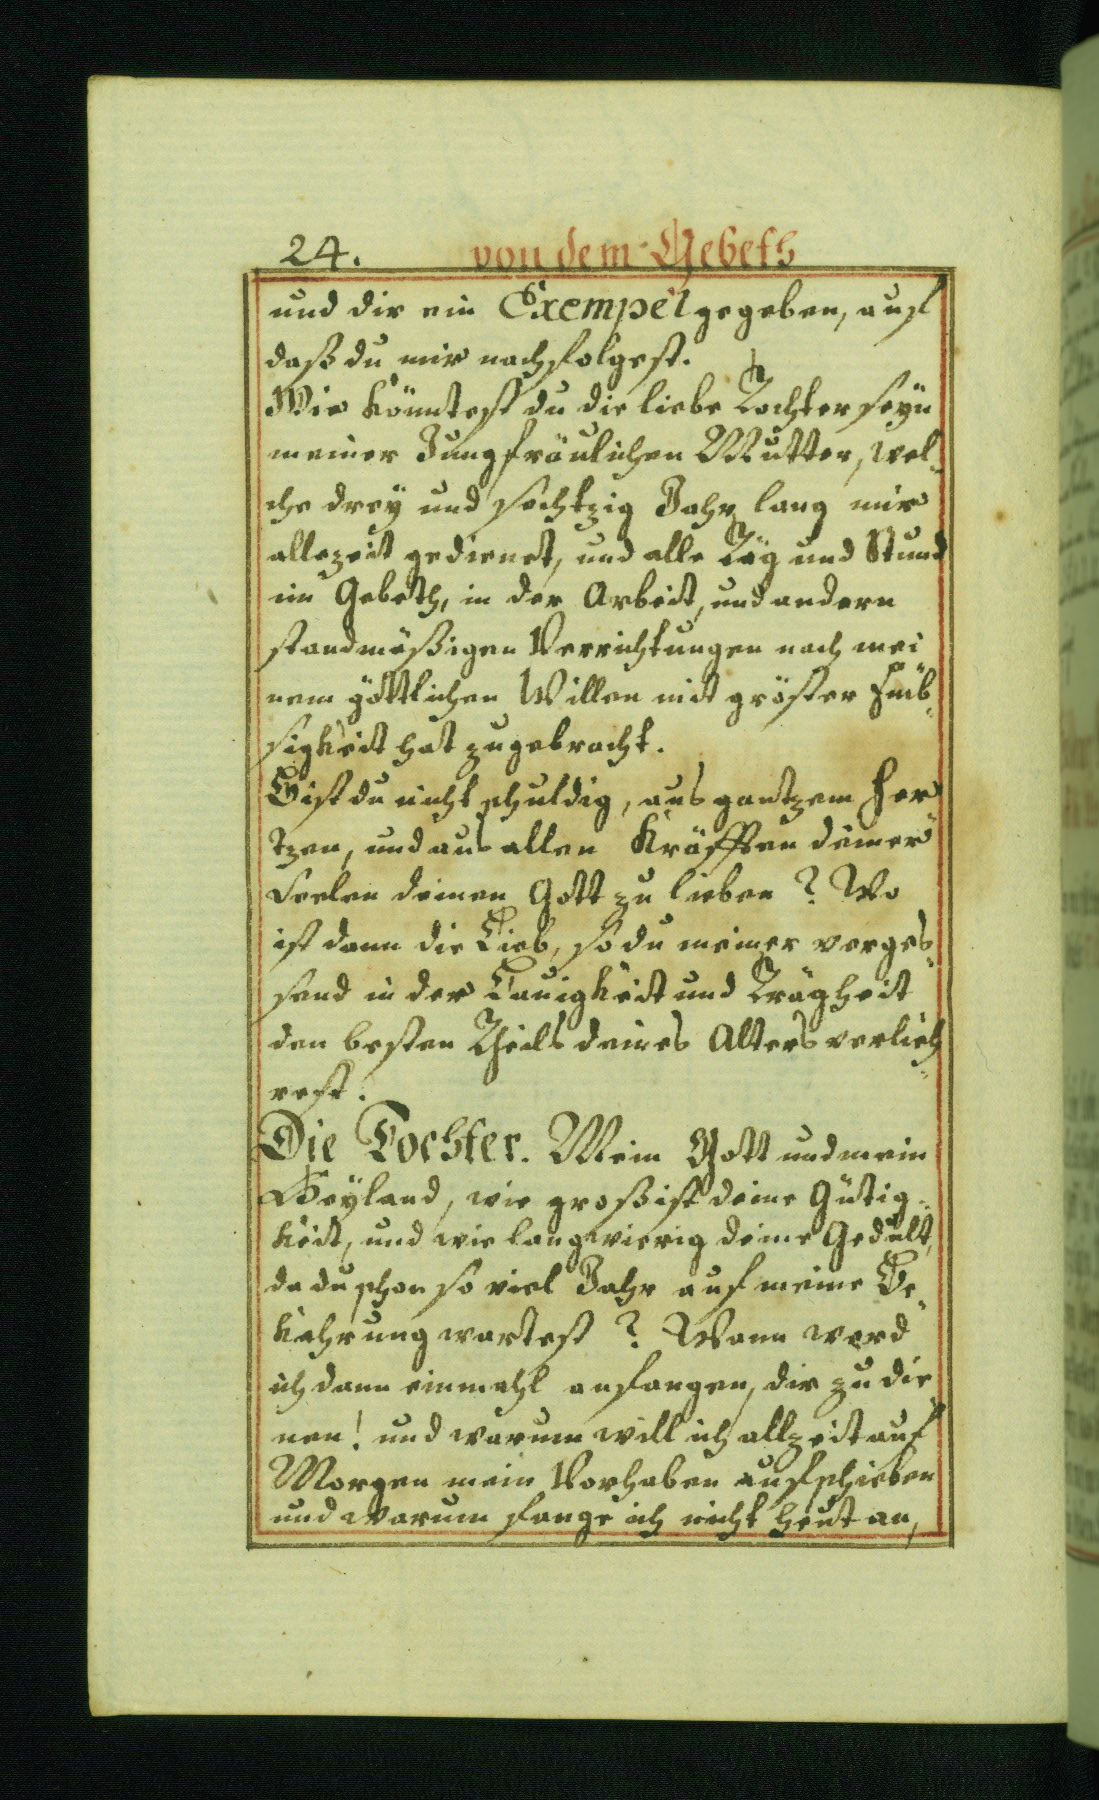 24. von dem Gebeth
und dir ein Exempel gegeben, auf
daß du mir nachfolgest.
Wie köntest du die liebe Tochter seyn
meiner Jungfräulichen Mutter, wel„
che drey und sechtzig Jahr lang mir
allezeit gedienet, und alle Täg und Stund
im Gebeth, in der Arbeit, und andern
standmäßigen Verrichtungen nach mei
nem göttlichen Willen mit gröster Emb„
sigkeit hat zugebracht.
Bist du nicht schuldig, aus gantzem Her
tzen, und aus allen Kräfften deiner
Seelen deinen Gott zu lieben? Wo
ist dann die Lieb, so du meiner verges„
send in der Lauigkeit und Trägheit
den besten Theils deines Alters verlieh„
rest.
Die Tochter. Mein Gott und mein
Heyland, wie groß ist deine Gütig„
keit, und wie langwierig deine Gedult,
da du schon so viel Jahr auf meine Be„
kehrung wartest? Wann werd
ich dann einmahl anfangen, dir zu die„
nen! und warum will ich allzeit auf
Morgen mein Vorhaben aufschieben
und warum fange ich nicht heut an,